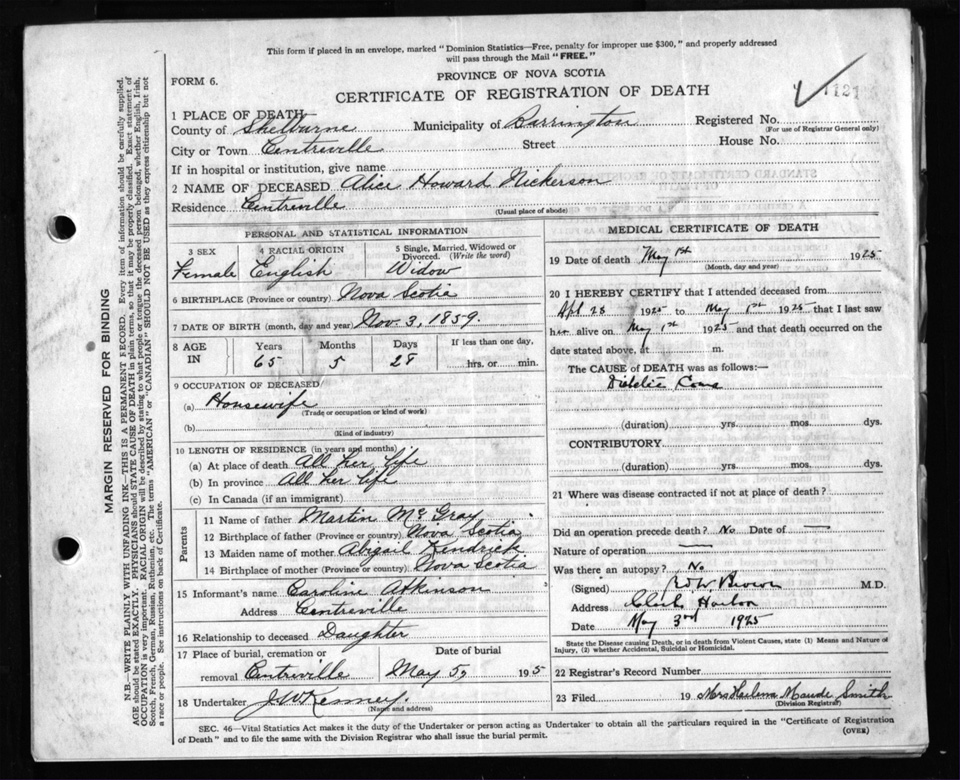 This form if placed in an envelope, marked "Dominion Statistics—Free, penalty for improper use $300," and properly addressed
will pass through the Mail "FREE."
PROVINCE OF NOVA SCOTIA
FORM 6.
CERTIFICATE OF REGISTRATION OF DEATH
1 PLACE OF DEATH
County of Shelburne Municipality of Barrington Registered No.
(For use of Registrar General only)
City or Town Centreville Street House No.
If in hospital or institution, give name
2 NAME OF DECEASED Alice Howard Nickerson
Residence Centreville
(Usual place of abode)
PERSONAL AND STATISTICAL INFORMATION
3 SEX 4 RACIAL ORIGIN 5 Single, Married, Widowed or
Divorced. (Write the word)
Female English Widow
6 BIRTHPLACE (Province or country) Nova Scotia
7 DATE OF BIRTH (month, day and year) Nov. 3, 1859.
8 AGE IN Years Months Days If less than one day,
65 5 28 hrs. or min.
9 OCCUPATION OF DECEASED
(a) Housewife
(Trade or occupation or kind of work)
(b)
(Kind of industry)
10 LENGTH OF RESIDENCE (in years and months)
(a) At place of death All her life
(b) In province All her life
(c) In Canada (if an immigrant)
Parents
11 Name of father Martin McGray
12 Birthplace of father (Province or country) Nova Scotia
13 Maiden name of mother Abigail Kendrick
14 Birthplace of mother (Province or country) Nova Scotia
15 Informant's name Caroline Atkinson
Address Centreville
16 Relationship to deceased Daughter
17 Place of burial, cremation or Date of burial
removal Centriville May 5, 195
18 Undertaker J W Kenney
(Name and address)
MEDICAL CERTIFICATE OF DEATH
19 Date of death May 1st 1925
(Month, day and year)
20 I HEREBY CERTIFY that I attended deceased from
Apl 28 1925 to May 1st 1925 that I last saw
her alive on May 1st 1925 and that death occurred on the
date stated above, at m.
The CAUSE of DEATH was as follows:—
Coma
(duration) yrs. mos. dys.
CONTRIBUTORY
(duration) yrs. mos. dys.
21 Where was disease contracted if not at place of death?
Did an operation precede death? No Date of —
Nature of operation —
Was there an autopay? No
(Signed) Brown M.D.
Address Clark Harbor
Date May 3rd 1925
State the Disease causing Death, or in death from Violent Causes, state (1) Means and Nature of
Injury, (2) whether Accidental, Suicidal or Homicidal.
22 Registrar's Record Number
23 Filed 19 Mrs Hulena Maude Smith
(Division Registrar)
SEC. 46—Vital Statistics Act makes it the duty of the Undertaker or person acting as Undertaker to obtain all the particulars required in the "Certificate of Registration
of Death" and to file the same with the Division Registrar who shall issue the burial permit.
(OVER)
MARGIN RESERVED FOR BINDING
N.B.—WRITE PLAINLY WITH UNFADING INK—THIS IS A PERMANENT RECORD. Every item of information should be carefully supplied.
AGE should be stated EXACTLY. PHYSICIANS should STATE CAUSE OF DEATH in plain terms, so that it may be properly classified. Exact statement of
OCCUPATION is very important. RACIAL ORIGIN will be described by stating to what people or tongue the deceased person belonged, whether English, Irish,
Scotch, French, German, Russian, Ruthenian, etc. The terms "AMERICAN" or "CANADIAN" SHOULD NOT BE USED as they express citizenship but not
a race or people. See instructions on back of Certificate.